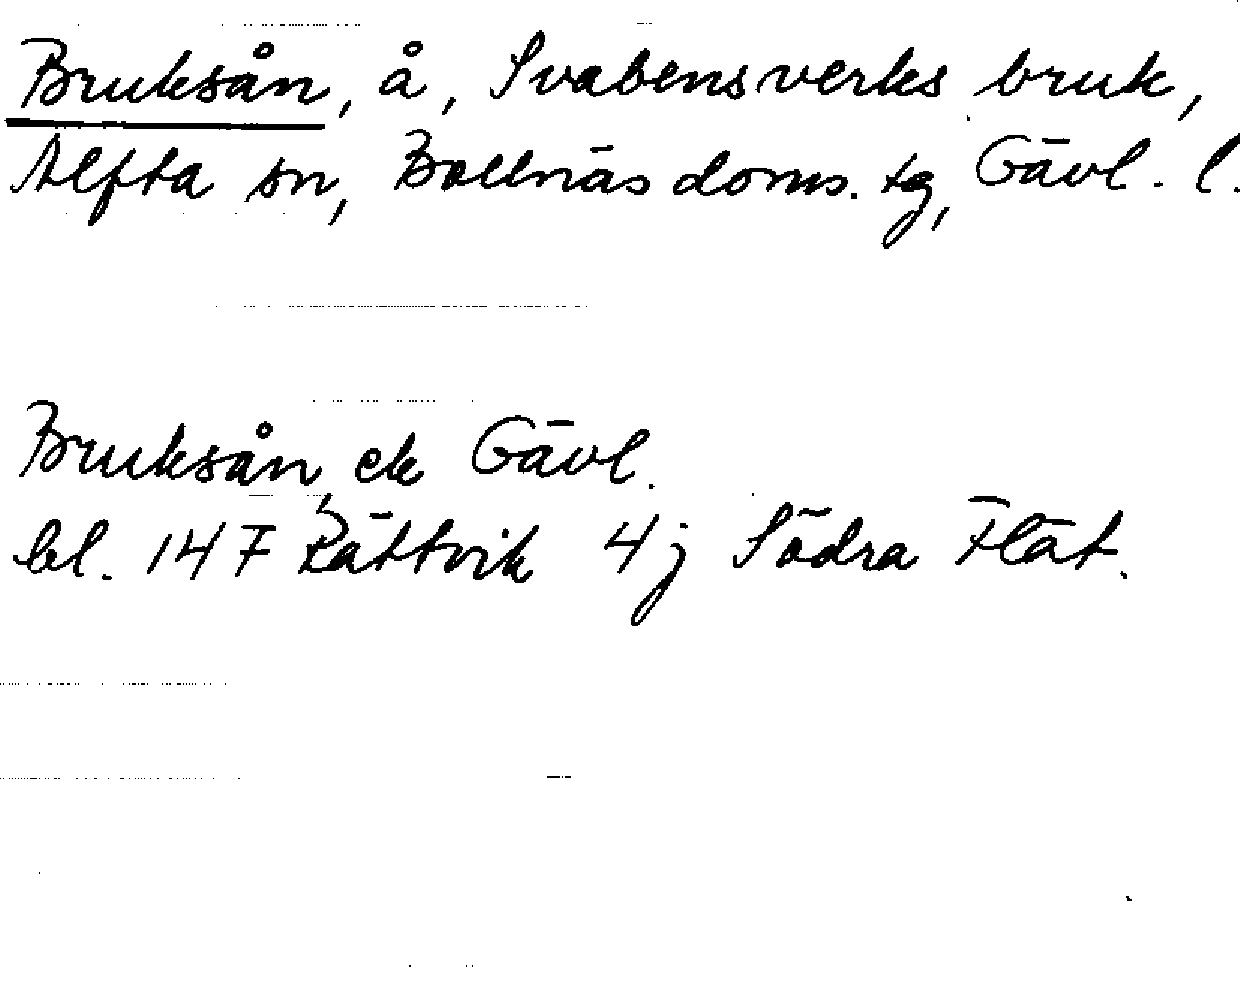 Bruksån, å, Svabensverks bruk,
Alfta sn, Bollnäs doms. tg, Gävl. l.
Bruksån, ek Gävl.
bl. 147 Rättvik 4j Södra Flät.